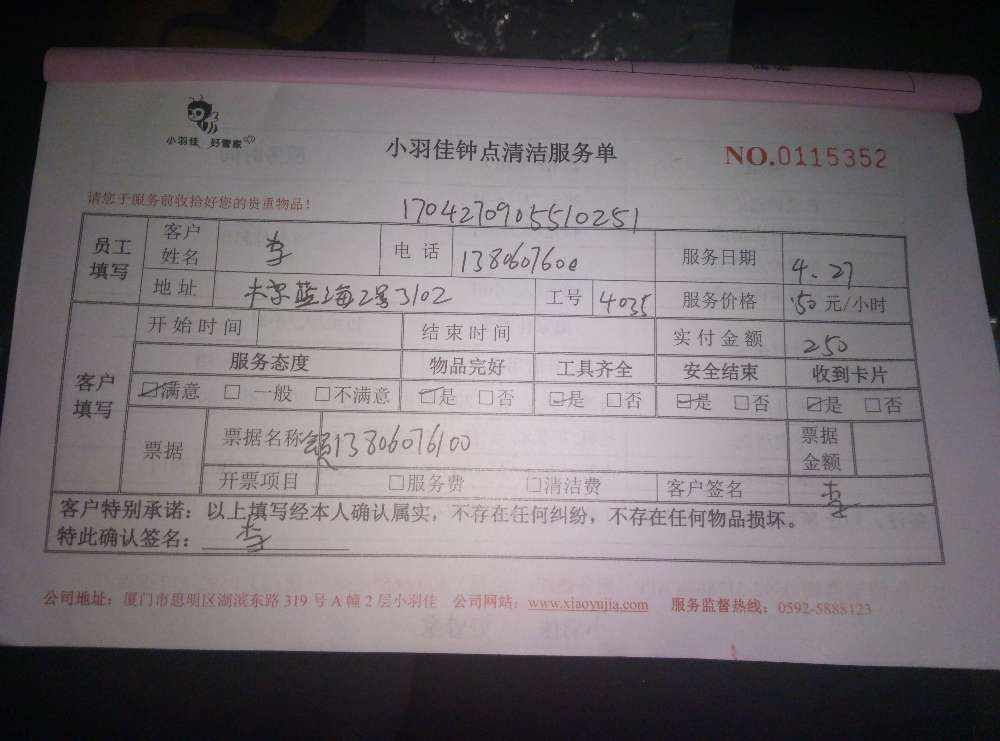 小羽佳 好管家
小羽佳钟点清洁服务单
NO.0115352
请您于服务前收拾好您的贵重物品!
1704270905510251
员工填写 客户姓名 李 电话 1380607600 服务日期 4.27
地址 2号3102 工号 4035 服务价格 50元/小时
客户填写 开始时间 结束时间 实付金额 250
服务态度 物品完好 工具齐全 安全结束 收到卡片
☑满意 □一般 □不满意 ☑是 □否 ☑是 □否 ☑是 □否 ☑是 □否
票据 票据名称 13806076100 票据金额
开票项目 □服务费 □清洁费 客户签名 李
客户特别承诺:以上填写经本人确认属实,不存在任何纠纷,不存在任何物品损坏。
特此确认签名: 李
公司地址:厦门市思明区湖滨东路319号A幢2层小羽佳 公司网站:www.xiaoyujia.com 服务监督热线:0592-5888123